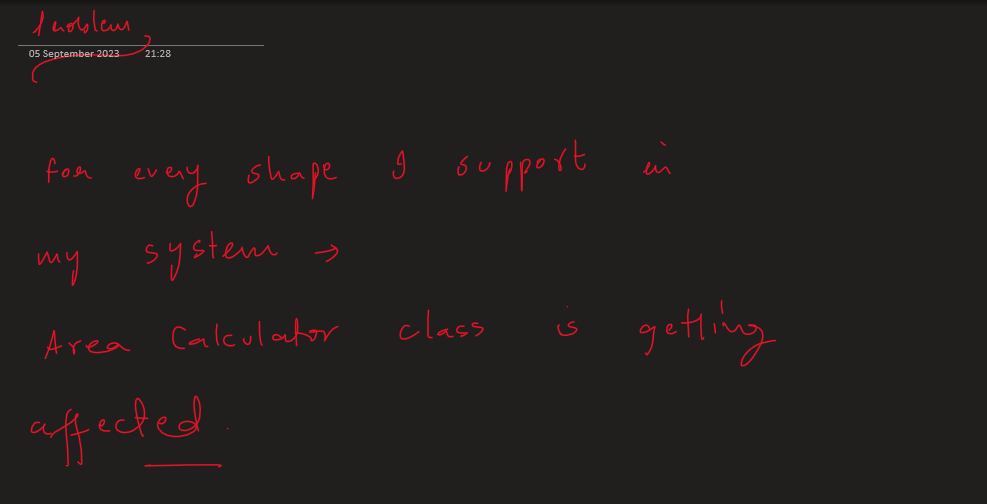 Problem
05 September 2023 21:28
for every shape I support in
my system →
Area Calculator class is getting
affected.